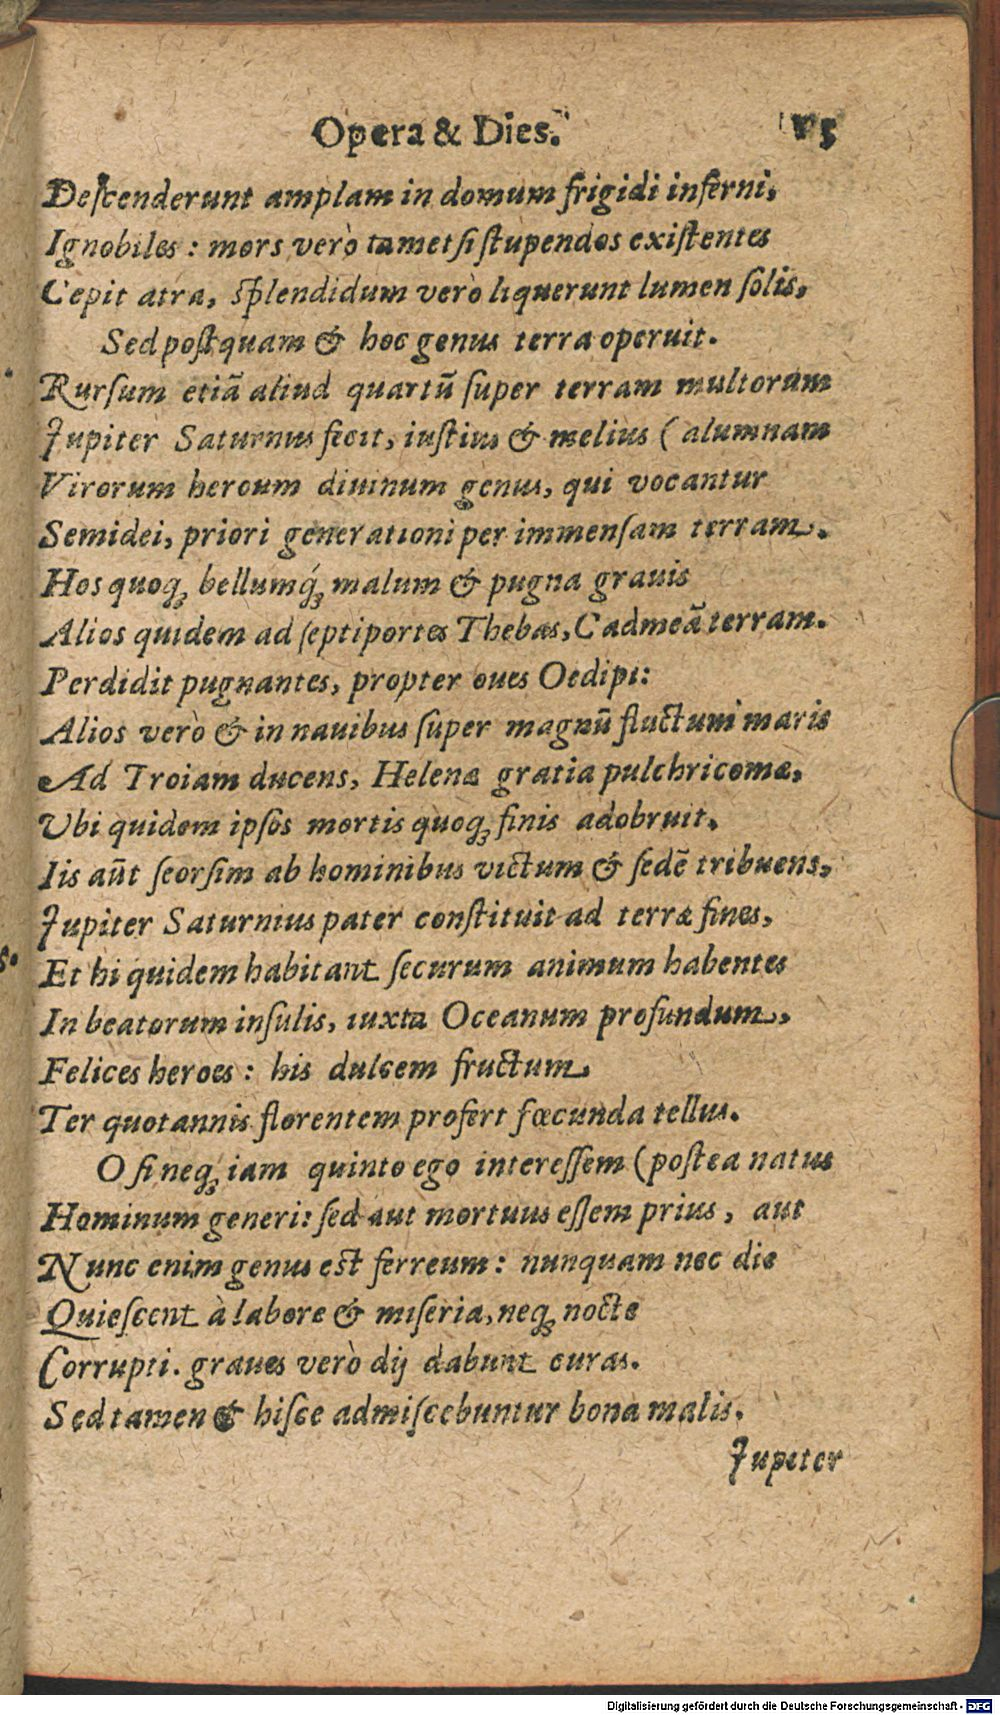 Opera & Dies. 15
Deſcenderunt amplam in domum frigidi inferni,
Ignobiles : mors verò tametſi ſtupendos exiſtentes
Cepit atra, ſplendidum verò liquerunt lumen ſolis,
Sed poſtquam & hoc genus terra operuit.
Rurſum etiā aliud quartū ſuper terram multorum
Jupiter Saturnius fecit, iuſtius & melius ( alumnam
Virorum heroum diuinum genus, qui vocantur
Semidei, priori generationi per immenſam terram.
Hos quoq; bellumq́; malum & pugna grauis
Alios quidem ad ſeptiportes Thebas, Cadmeā terram.
Perdidit pugnantes, propter oues Oedipi:
Alios verò & in nauibus ſuper magnū fluctum maris
Ad Troiam ducens, Helenæ gratia pulchricomæ,
Ubi quidem ipſos mortis quoq; finis adobruit.
Iis aūt ſeorſim ab hominibus victum & ſedē tribuens,
Jupiter Saturnius pater conſtituit ad terræ fines,
Et hi quidem habitant ſecurum animum habentes
In beatorum inſulis, iuxta Oceanum profundum,
Felices heroes : his dulcem fructum
Ter quotannis florentem profert fœcunda tellus.
O ſi neq; iam quinto ego intereſſem ( poſtea natus
Hominum generi: ſed aut mortuus eſſem prius, aut
Nunc enim genus eſt ferreum : nunquam nec die
Quieſcent à labore & miſeria, neq; nocte
Corrupti. graues verò dij dabunt curas.
Sed tamen & hiſce admiſcebuntur bona malis.
Jupiter
Digitalisierung gefördert durch die Deutsche Forschungsgemeinschaft - DFG